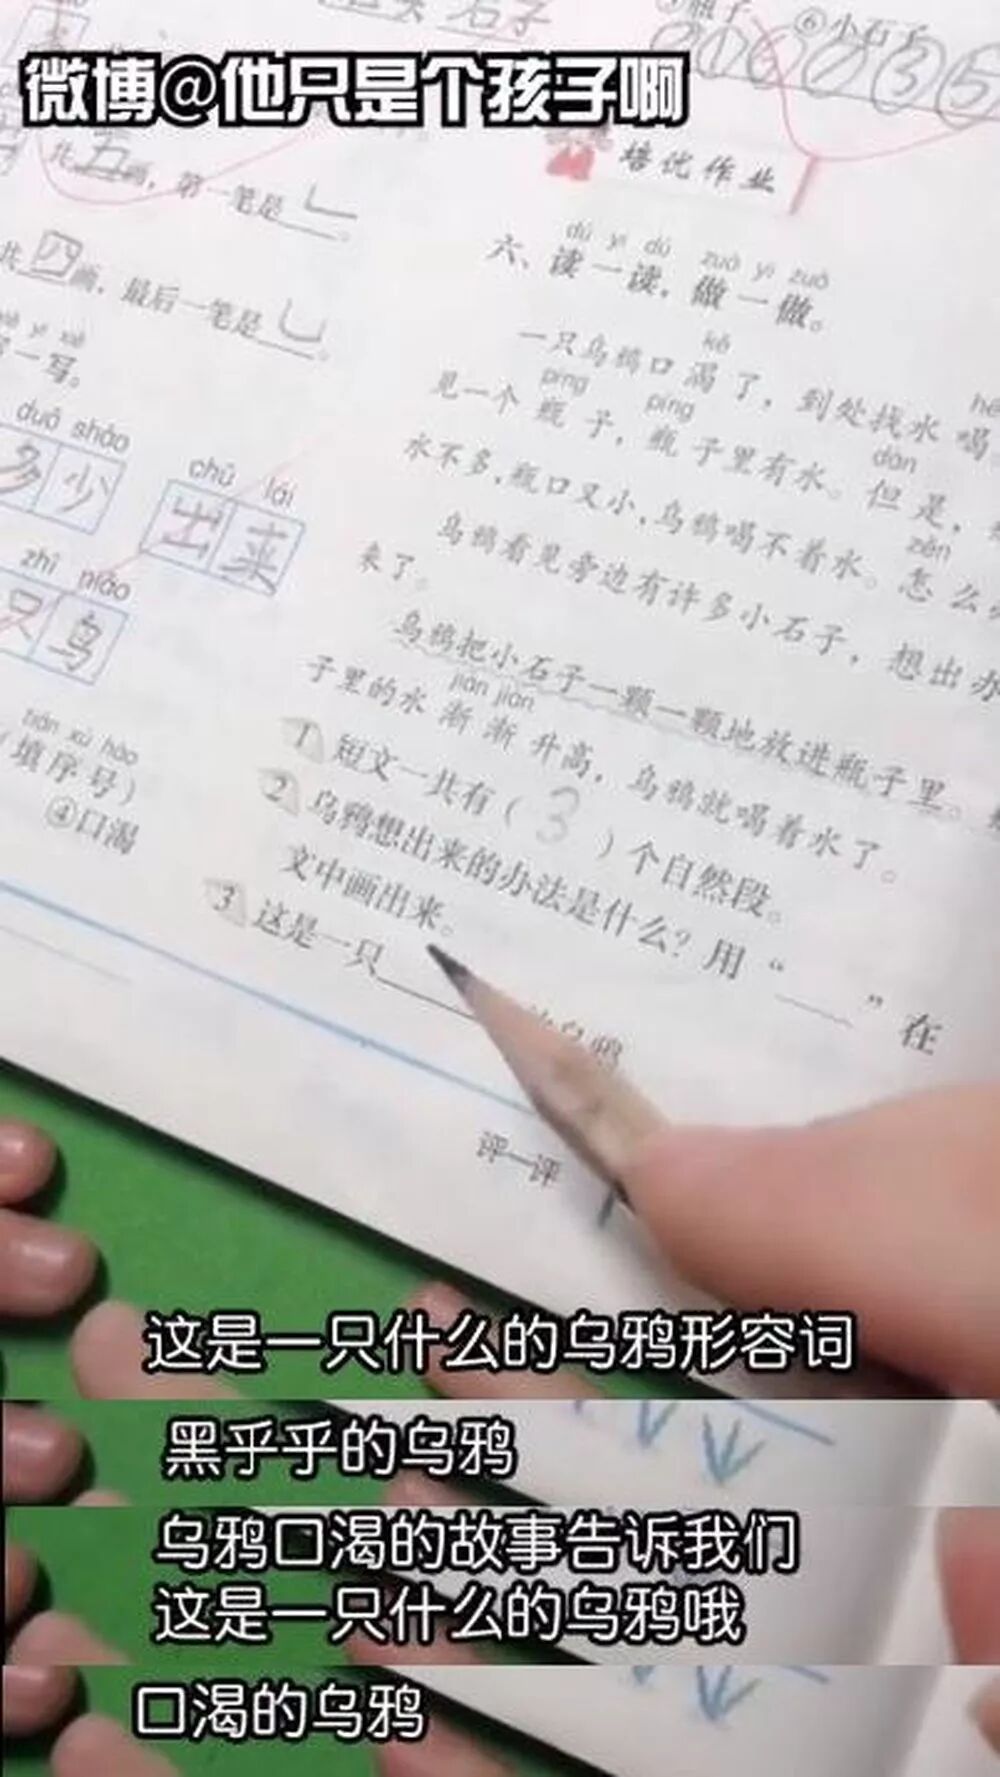 石子
子
⑥小石子
③⑤
微博@他只是个孩子啊
培优作业
共五画，第一笔是㇃。
共四画，最后一笔是乚。
一写。
duō shǎo
多少
chū lái
出来
zhī niǎo
只鸟
tián xù hào
（填序号）
④口渴
dú yi dú zuò yi zuò
六、读一读，做一做。
kě
一只乌鸦口渴了，到处找水喝
píng píng
见一个瓶子，瓶子里有水。但是，
dàn
水不多，瓶口又小，乌鸦喝不着水。怎么
zěn
乌鸦看见旁边有许多小石子，想出办
来了。
乌鸦把小石子一颗一颗地放进瓶子里。
jiàn jiàn
子里的水渐渐升高，乌鸦就喝着水了。
1 短文一共有（3）个自然段。
2 乌鸦想出来的办法是什么？用“___”在
文中画出来。
3 这是一只
评一评
这是一只什么的乌鸦形容词
黑乎乎的乌鸦
乌鸦口渴的故事告诉我们
这是一只什么的乌鸦哦
口渴的乌鸦